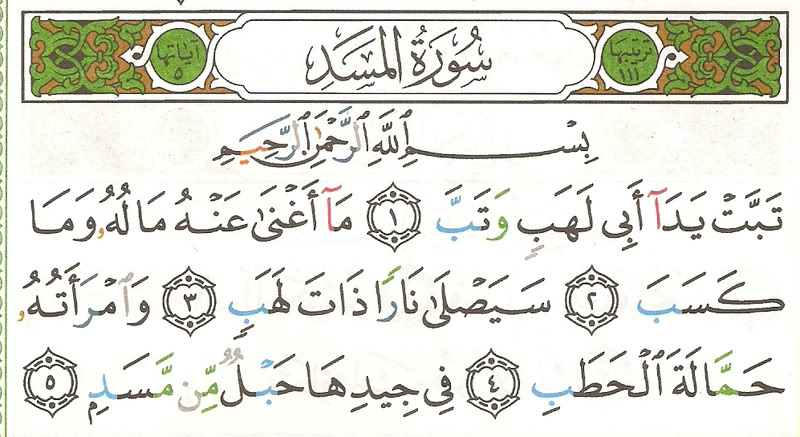 ترتيبها ١١١ سُورَةُ المَسَدِ آياتها ٥
بِسْمِ ٱللَّهِ ٱلرَّحْمَٰنِ ٱلرَّحِيمِ
تَبَّتْ يَدَآ أَبِى لَهَبٍ وَتَبَّ ١ مَآ أَغْنَىٰ عَنْهُ مَالُهُۥ وَمَا
كَسَبَ ٢ سَيَصْلَىٰ نَارًا ذَاتَ لَهَبٍ ٣ وَٱمْرَأَتُهُۥ
حَمَّالَةَ ٱلْحَطَبِ ٤ فِى جِيدِهَا حَبْلٌ مِّن مَّسَدٍۭ ٥